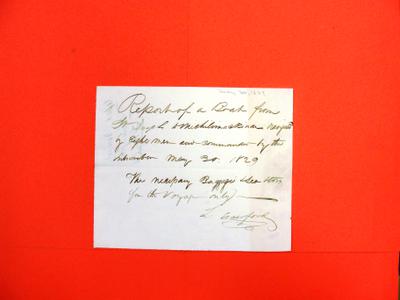 May 20, 1829
Report of a Boat from
St. Josephs to Michilimackinac navigated
by Eight men and commanded by the
subscriber May 20. 1829
The necessary Baggage & Sea Stores
for the Voyage only
L. Crawford